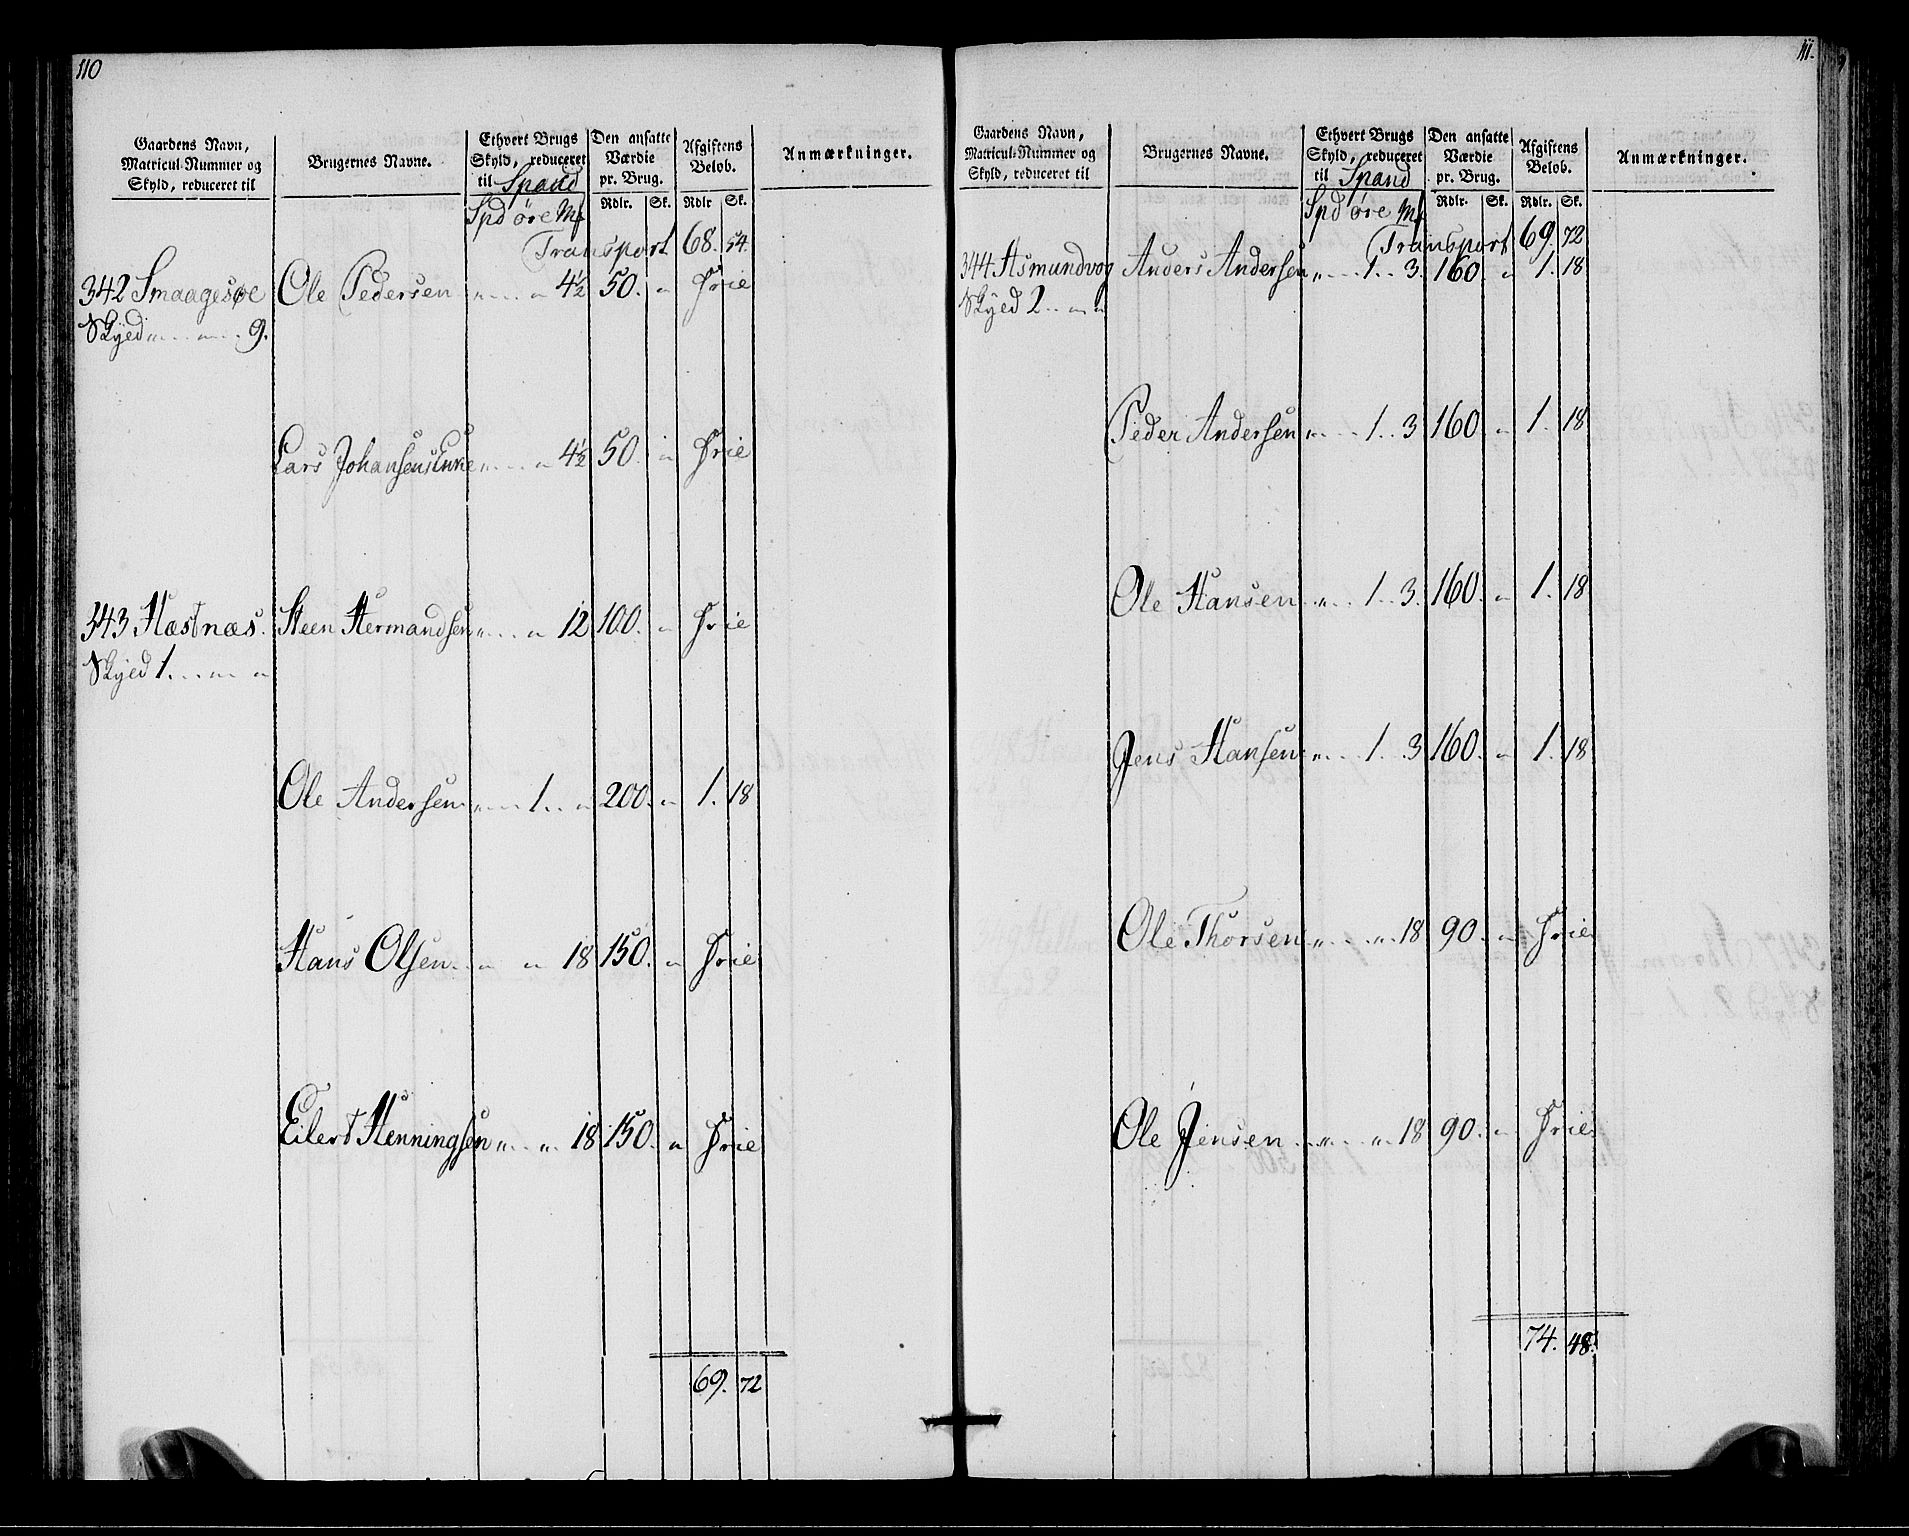 110
Gaardens Navn, Matricul-Nummer og Skyld, reduceret til
Brugernes Navne.
Ethvert Brugs Skyld, reduceret til Spand
Den ansatte Værdie pr. Brug.
Afgiftens Beløb.
Anmærkninger.
Spd øre Mk Rdlr. Sk. Rdlr Sk.
Transport 68. 54.
342 Smaagesøe Ole Pedersen „ „ 4½ 50. „ Frie
Skyed „ „ 9.
Lars Johansens Enke „ „ 4½ 50. „ Frie
343 Hæstnæs. Steen Hermandsen „ „ 12 100. „ Frie
Skyed 1. „ „
Ole Andersen „ 1. „ 200. „ 1. 18
Hans Olsen „ „ 18 150. „ Frie
Eilert Henningsen „ „ 18 150. „ Frie
69. 72
111.
Gaardens Navn, Matricul-Nummer og Skyld, reduceret til
Brugernes Navne.
Ethvert Brugs Skyld, reduceret til Spand
Den ansatte Værdie pr. Brug.
Afgiftens Beløb.
Anmærkninger.
Spd øre Mk Rdlr. Sk. Rdlr. Sk.
Transport 69. 72
344 Asmundvog Anders Andersen „ 1. 3. 160. „ 1. 18
Skyed 2 „ „
Peder Andersen „ 1. 3 160. „ 1. 18
Ole Hansen „ 1. 3. 160. „ 1. 18
Jens Hansen „ 1. 3 160. „ 1. 18
Ole Thorsen „ „ 18 90. „ Frie
Ole Jensen „ „ 18 90. „ Frie
74. 48.